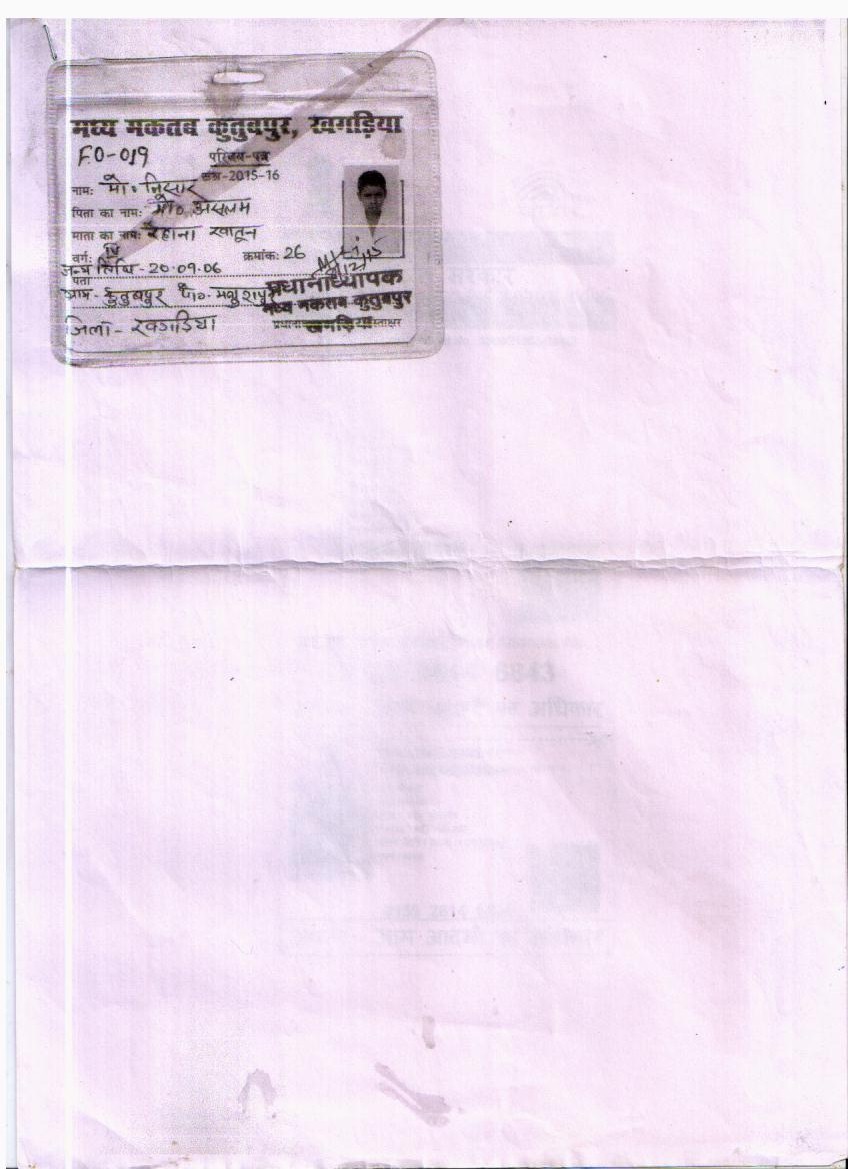 मध्य मकतब कुतुबपुर, खगड़िया
F.0-019
परिचय-पत्र
सत्र-2015-16
नामः मो० निसार
पिता का नामः मो० असलम
माता का नामः रेहाना खातून
वर्गः क्रमांकः 26
जन्म तिथि - 20.09.06
पता
ग्राम - कुतुबपुर पो०- मथुरापुर
जिला - खगड़िया
प्रधानाध्यापक
मध्य मकतब कुतुबपुर
खगड़िया